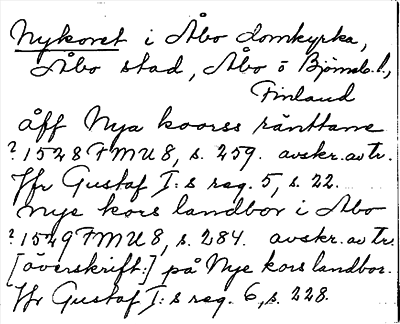 Nykoret i Åbo domkyrka,
Åbo stad, Åbo o Björneb. l.,
Finland
åff Nya koorss ränttane
? 1528 FMU 8, s. 259. avskr. av tr.
Jfr Gustaf I:s reg. 5, s. 22.
nye kors landbor i Åbo
? 1529 FMU 8, s. 284. avskr. av tr.
[överskrift:] på Nye kors landbor.
Jfr Gustaf I:s reg. 6, s. 228.